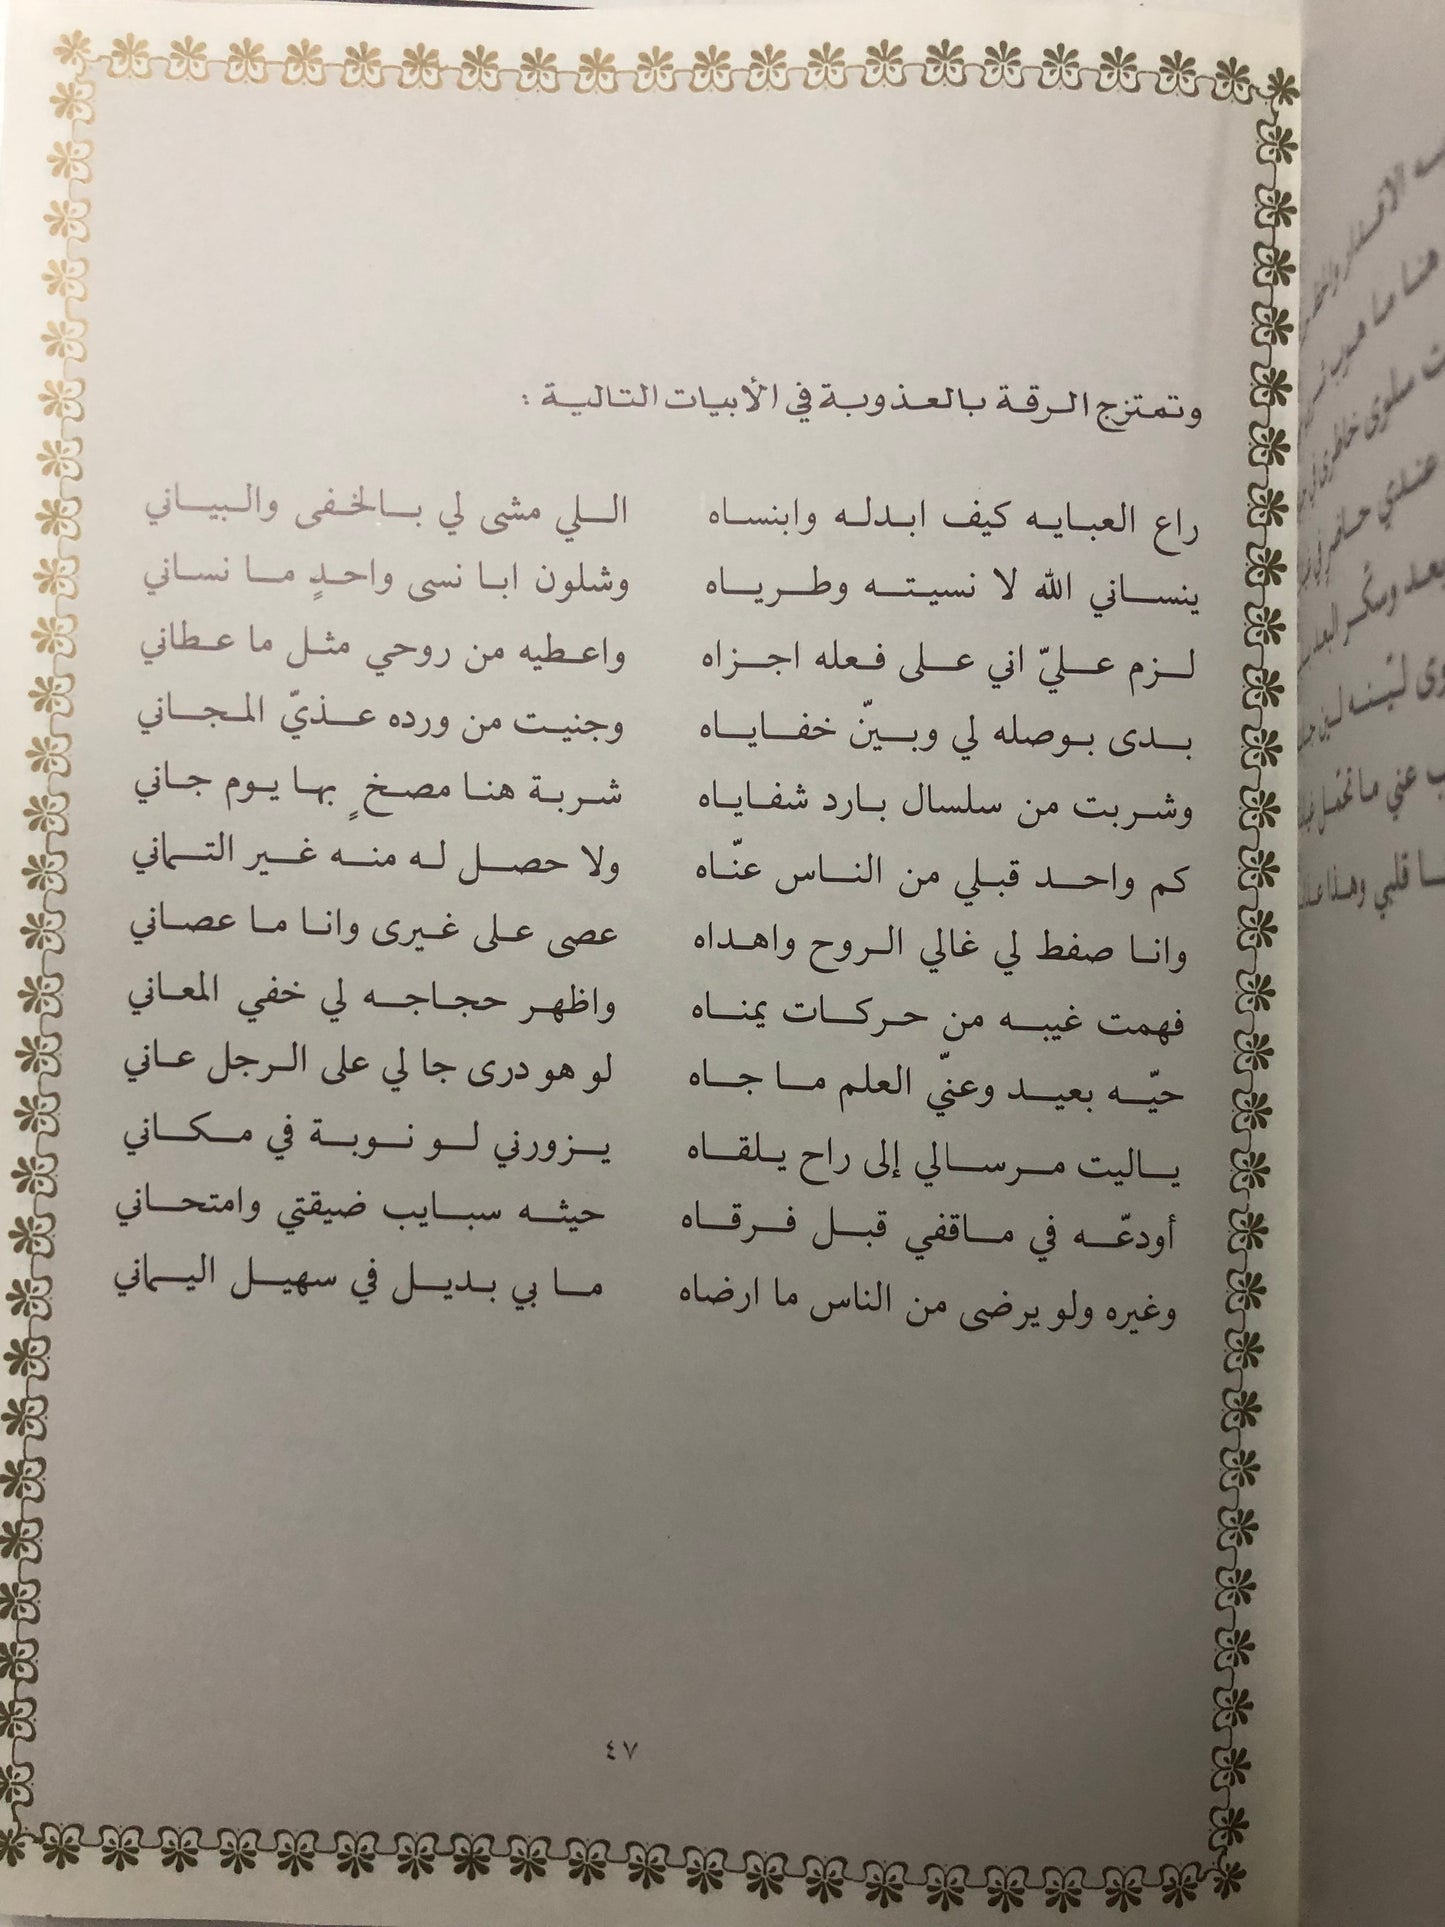 وتمتزج الرقة بالعذوبة في الأبيات التالية :
راع العبايه كيف ابدله وابنساه اللي مشى لي بالخفى والبياني
ينساني الله لا نسيته وطرياه وشلون ابا نسى واحدٍ ما نساني
لزم عليّ اني على فعله اجزاه واعطيه من روحي مثل ما عطاني
بدى بوصله لي وبيّن خفاياه وجنيت من ورده عذيّ المجاني
وشربت من سلسال بارد شفاياه شربة هنا مصخٍ بها يوم جاني
كم واحد قبلي من الناس عنّاه ولا حصل له منه غير التماني
وانا صفط لي غالي الروح واهداه عصى على غيرى وانا ما عصاني
فهمت غيبه من حركات يمناه واظهر حجاجه لي خفي المعاني
حيّه بعيد وعنيّ العلم ما جاه لو هو درى جا لي على الرجل عاني
ياليت مرسالي إلى راح يلقاه يزورني لو نوبة في مكاني
أودعّه في ماقفي قبل فرقاه حيثه سبايب ضيقتي وامتحاني
وغيره ولو يرضى من الناس ما ارضاه ما بي بديل في سهيل اليماني
٤٧